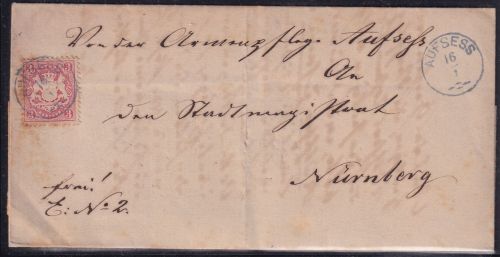 Von der Armenpflege Aufseß
An
den Stadtmagistrat
Nürnberg
frei!
E: No 2.
AUFSESS
16
1
3
3
3
3